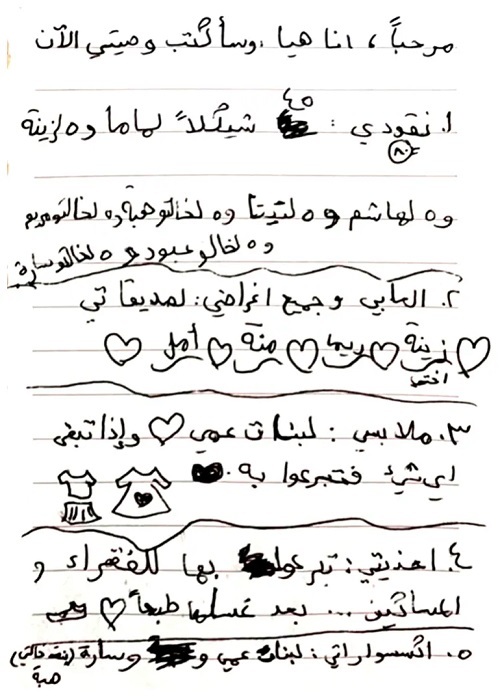 مرحباً ، انا هيا ، وسأكتب وصيتي الآن
١. نقودي : ٤٥ شيكلاً لماما و٥ لزينة
٨٠
و٥ لهاشم و٥ لتيتا و٥ لخالتو هبة و٥ لخالتو مريم
و٥ لخالو عبود و٥ لخالتو سارة
٢. العابي وجميع اغراضي : لصديقاتي
زينة ريما منة أمل
اختي
٣. ملابسي : لبنات عمي وإذا تبقى
اي شيء فتبرعوا به .
٤. احذيتي : تبرعوا بها للفقراء و
المساكين ... بعد غسلها طبعاً
٥. اكسسواراتي : لبنات عمي و وسارة (بنت خالتي)
هبة